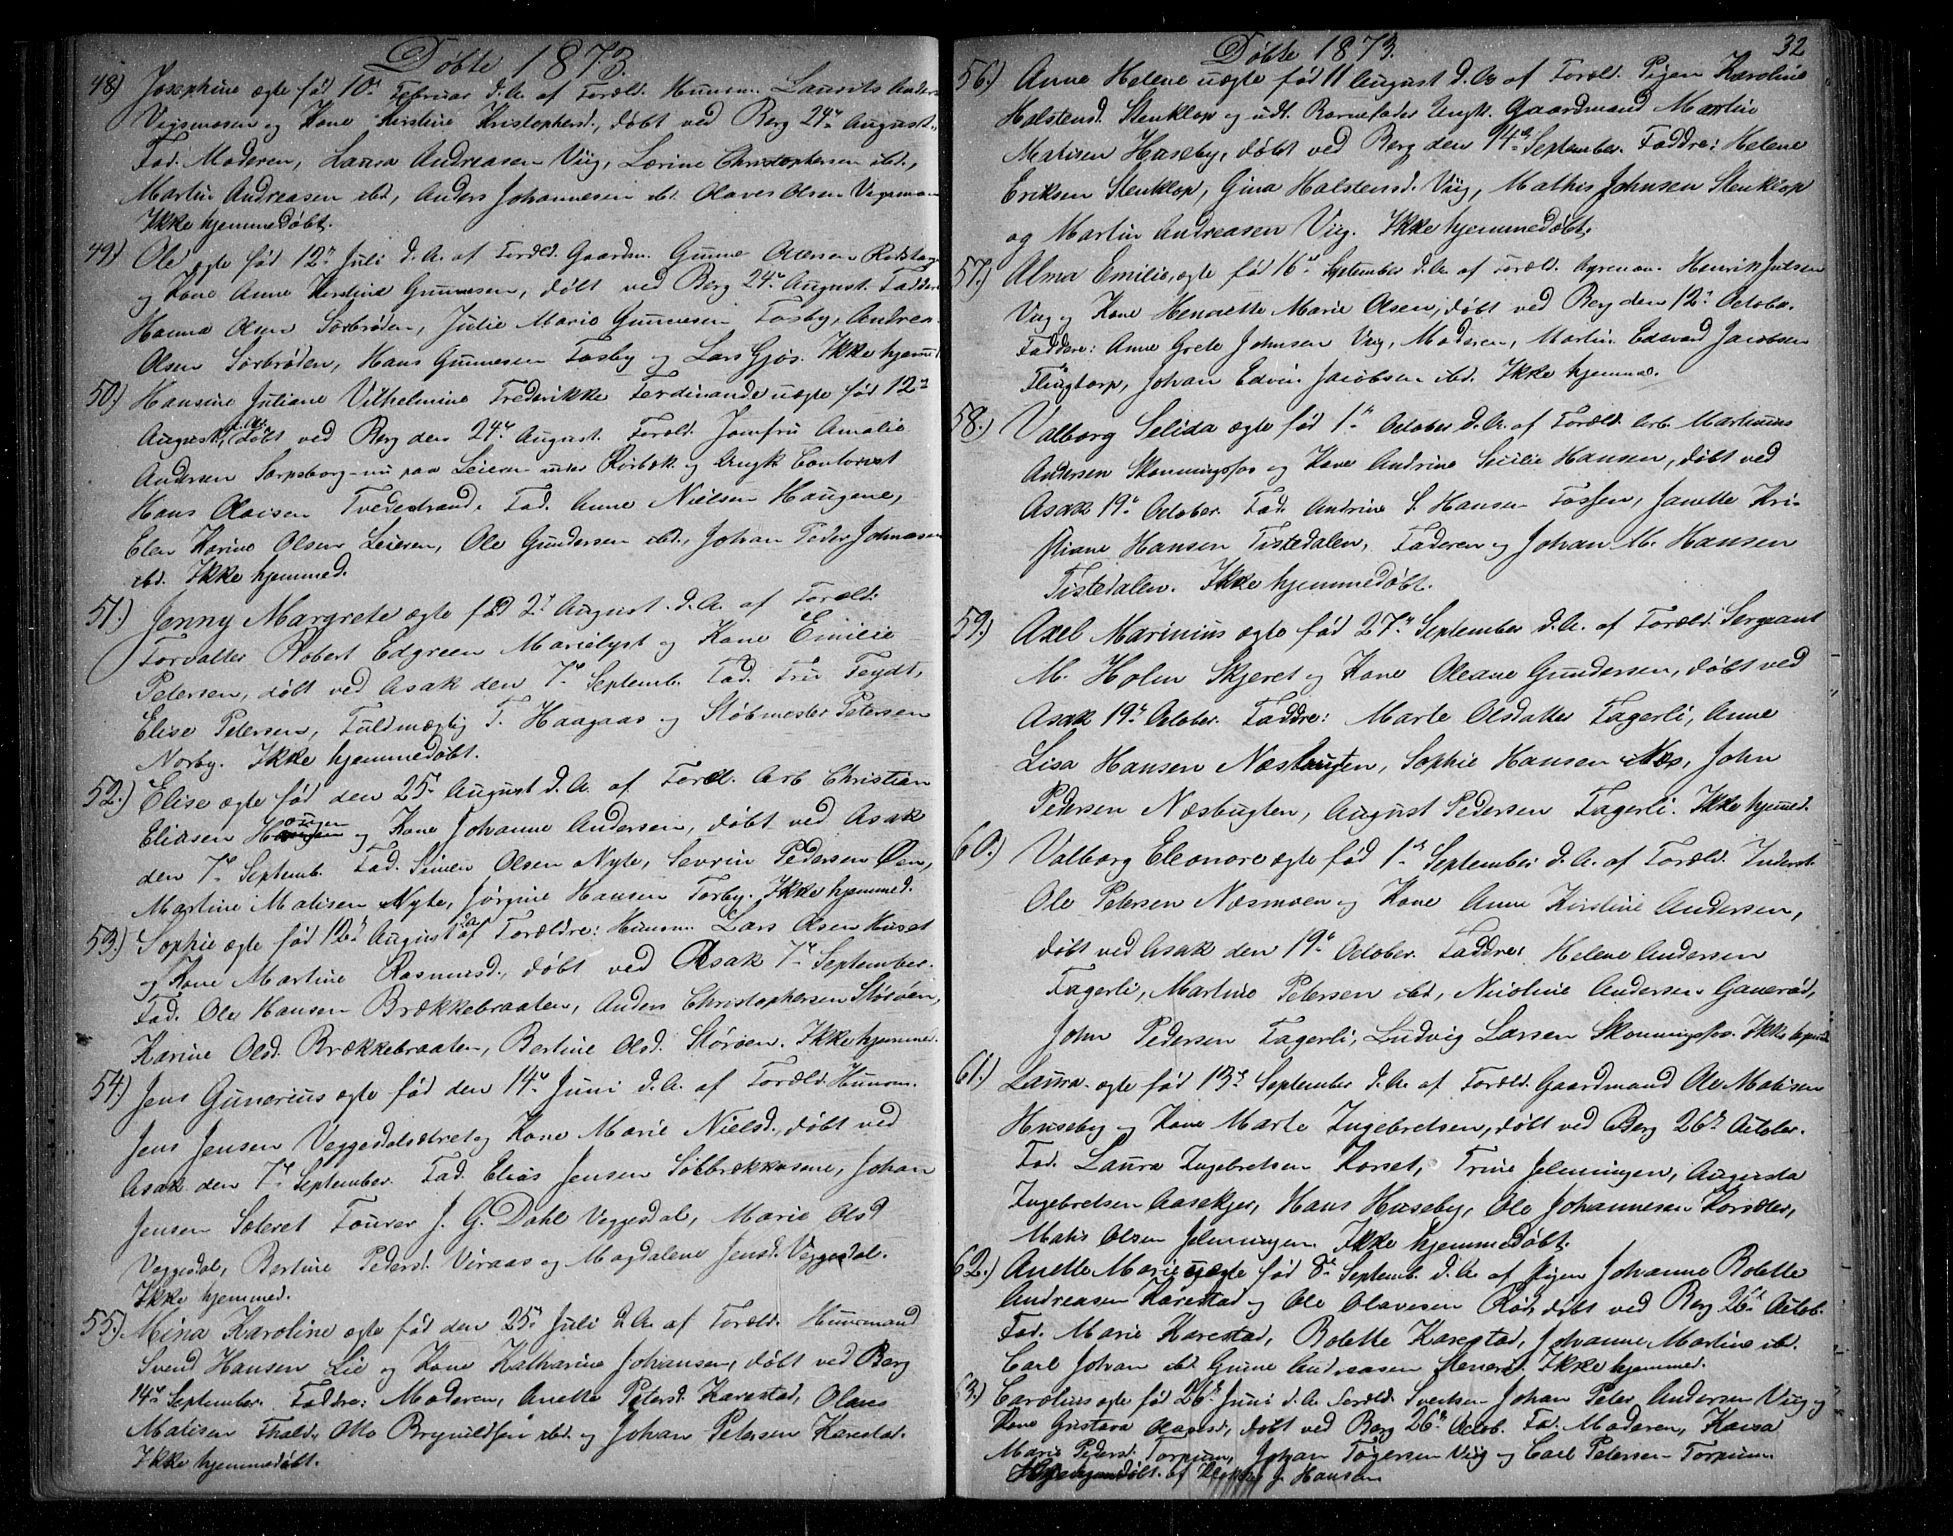 Døbte 1873.
48) Josephine ægte fød 10de Februar d.A. af Foræld. Huusm. Laurits Anders.
Vigsmosen og Kone Kirstine Kristophersd., døbt ved Berg 24de August.
Fad. Moderen, Laura Andreasen Viig, Lorine Christophersen ibd.,
Martin Andreasen ibd, Anders Johannesen ibd. Olaves Olsen Vigsmosen
Ikke hjemmedøbt.
49) Ole ægte fød 12te Juli d.A. af Foræld. Gaardm. Gunne Olsen
og Kone Anne Kirstine Gunnesen, døbt ved Berg 24de August. Faddere
Hanna Olsen Sørbrøden, Julie Marie Gunnesen Fosby, Andrea
Olsen Sørbrøden, Hans Gunnesen Fosby og Lars Gjøs. Ikke hjemm.
50) Hansine Juliane Vilhelmine Frederikke Ferdinande uægte fød 12te
August d.A. døbt ved Berg den 24de August. Foræld. Jomfru Amalie
Andersen Sarpsborg - nu paa Leieren under Rørbæk og Ungk. Contorist
Hans Olavsen Tvedestrand. Fad. Anne Nielsen Haugene,
Elen Karine Olsen Leieren, Ole Gundersen ibd., Johan Peder Johnasen
ibd. Ikke hjemmed.
51.) Jenny Margrete ægte fød 2de August d.A. af Foræld:
Forvalter Robert Edgreen Marielyst og Kone Emilie
Petersen, døbt ved Asak den 7de Septemb. Fad. Fru Feydt,
Elise Petersen, Fuldmægtig T. Haagaas og Støbmester Petersen
Norby. Ikke hjemmedøbt.
52.) Elise ægte fød den 25de August d.A. af Foræld. Arb Christian
Eliasen Hougen og Kone Johanne Andersen, døbt ved Asak
den 7de Septemb. Fad. Simen Olsen Nyte, Sevrin Pedersen Øen,
Martine Matisen Nyte, Jørgine Hansen Torby. Ikke hjemmed.
53.) Sophie ægte fød 12te August d.A. af Forældre: Huusm. Lars Olsen Huset
og Kone Martine Rasmusd., døbt ved Asak 7de September.
Fad. Ole Hansen Brækkebraaten, Anders Christophersen Størøen,
Karine Olsd. Brækkebraaten, Bertine Olsd. Størøen. Ikke hjemmed.
54.) Jens Gunerius ægte fød den 14de Juni d.A. af Foræld. Huusm.
Jens Jensen Veggesdalsætret og Kone Marie Nielsd., døbt ved
Asak den 7de September. Fad. Elias Jensen Søbbrækkasene, Johan
Jensen Sæteret Fourer J. G. Dahl Veggesdal, Marie Olsd
Veggesdal, Bertine Pedersd. Viraas og Magdalene Jensd. Veggesdal.
Ikke hjemmed.
55.) Mina Karoline ægte fød den 25de Juli d.A. af Foræld. Huusmand
Svend Hansen Lie og Kone Katharine Johansen, døbt ved Berg
14de September. Faddre: Moderen, Anette Petersd. Karestad, Olaus
Matisen Thald, Otto Brynildsen ibd. og Johan Petersen Karestad.
Ikke hjemmedøbt.
Døbte 1873.
32
56.) Anne Helene uægte fød 11 August d.A. af Foræld. Pigen Karoline
Halstensd. Stenklop og udl. Barnefader Ungk. Gaardmand Martin
Matisen Huseby, døbt ved Berg den 14de September. Faddre: Helene
Eriksen Stenklop, Gina Halstensd. Viig, Mathis Johnsen Stenklop
og Martin Andreasen Viig. Ikke hjemmedøbt.
57.) Alma Emilie, ægte fød 16de September d.A. af Foræld. Henrik Julsen
Viig og Kone Henriette Marie Olsen, døbt ved Berg den 12te October.
Faddere: Anne Grete Johnsen Viig, Moderen, Martin Edevard Jacobsen
Flingtorp, Johan Edvin Jacobsen ibd. Ikke hjemme.
58.) Valborg Selida ægte fød 1de October d.A. af Foræld. Arb. Martinius
Andersen Skonningsfos og Kone Andrine Sicilie Hansen, døbt ved
Asak 19de October. Fad. Andrine S. Hansen Fossen, Janette Kri-
stiane Hansen Tistedalen, Faderen og Johan M. Hansen
Tistedalen. Ikke hjemmedøbt.
59.) Axel Marinius ægte fød 27de September d.A. af Foræld. Sergeant
M. Holm Skjeret og Kone Oleane Gundersen, døbt ved
Asak 19de October. Faddre: Marte Olsdatter Fagerli, Anne
Lisa Hansen Næsbugten, Sophie Hansen Næs, John
Pedersen Næsbugten, August Pedersen Fagerli. Ikke hjemmed.
60.) Valborg Eleonore ægte fød 1de September d.A. af Foræld. Inderst
Ole Petersen Næsmoen og Kone Anne Kirstine Andersen,
døbt ved Asak den 19de October. Faddre: Helene Andersen
Fagerli, Martine Petersen ibd, Nicoline Andersen Ganerød,
John Pedersen Fagerli, Ludvig Larsen Skonningsfos. Ikke hjemmed.
61.) Laura ægte fød 13de September d.A. af Foræld. Gaardmand Ole Matisen
Huseby og Kone Marte Ingebretsen, døbt ved Berg 26de October.
Fad. Laura Ingebretsen Korset, Trine Jelmingen, Augusta
Ingebretsen Aasekjer, Hans Huseby, Ole Johannesen Korsæter,
Matis Olsen Jelmingen. Ikke hjemmedøbt.
62.) Anette Marie uægte fød 8de Septemb. d.A. af Pigen Johanne Bolette
Andreasen Karestad og Ole Olavesen Rød, døbt ved Berg 26de Octob.
Fad. Marie Karestad, Bolette Karestad, Johanne Martine ibd.
Carl Johan ibd. Gunne Andreasen Stenerød. Ikke hjemmed.
63.) Carolius ægte fød 26de Juni d.A. Foræld. Svensken Johan Peter Andersen Viig og
Kone Gustava Aagesd., døbt ved Berg 26de Octob. Fad. Moderen, Kaisa
Marie Pedersd. Torpum, Johan Togersen Viig og Carl Petersen Torpum.
Hjemmedøbt af J. Hansen